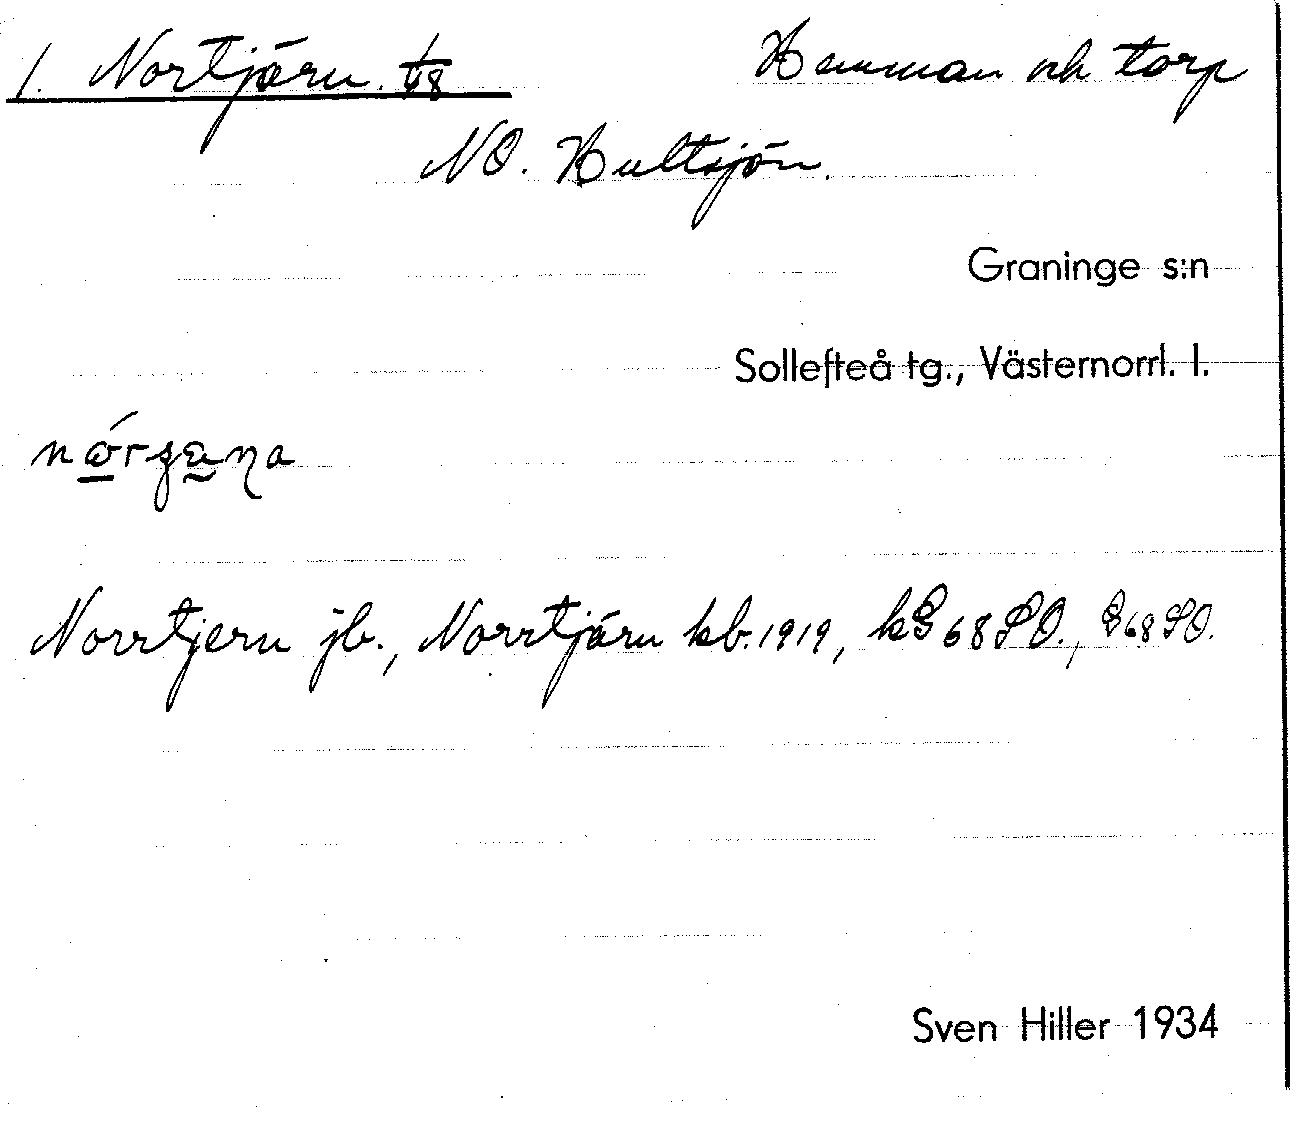 1. Nortjärn. 1/48 Hemman och torp
NO. Hultsjön.
Graninge s:n
Sollefteå tg., Västernorrl. l.
Norrtjern jb., Norrtjärn kb. 1919, kG 68 SO., G 68 SO.
Sven Hiller 1934